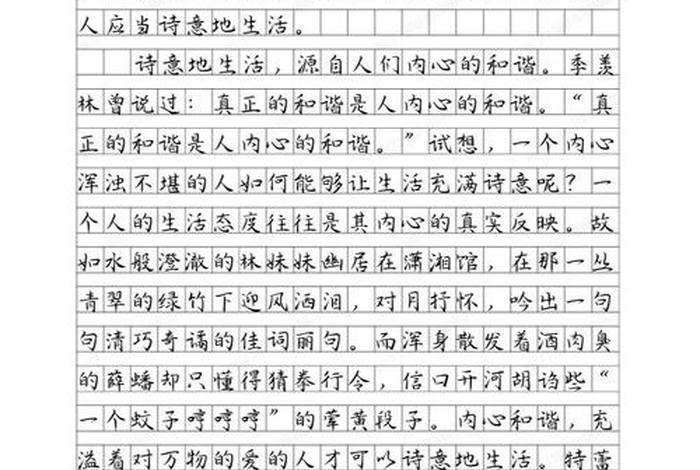 人应当诗意地生活。
诗意地生活，源自人们内心的和谐。季羡
林曾说过：真正的和谐是人内心的和谐。“真
正的和谐是人内心的和谐。”试想，一个内心
浑浊不堪的人如何能够让生活充满诗意呢？一
个人的生活态度往往是其内心的真实反映。故
如水般澄澈的林妹妹幽居在潇湘馆，在那一丛
青翠的绿竹下迎风洒泪，对月抒怀，吟出一句
句清巧奇谲的佳词丽句。而浑身散发着酒肉臭
的薛蟠却只懂得猜拳行令，信口开河胡诌些“
一个蚊子哼哼哼”的荤黄段子。内心和谐，充
溢着对万物的爱的人才可以诗意地生活。特蕾